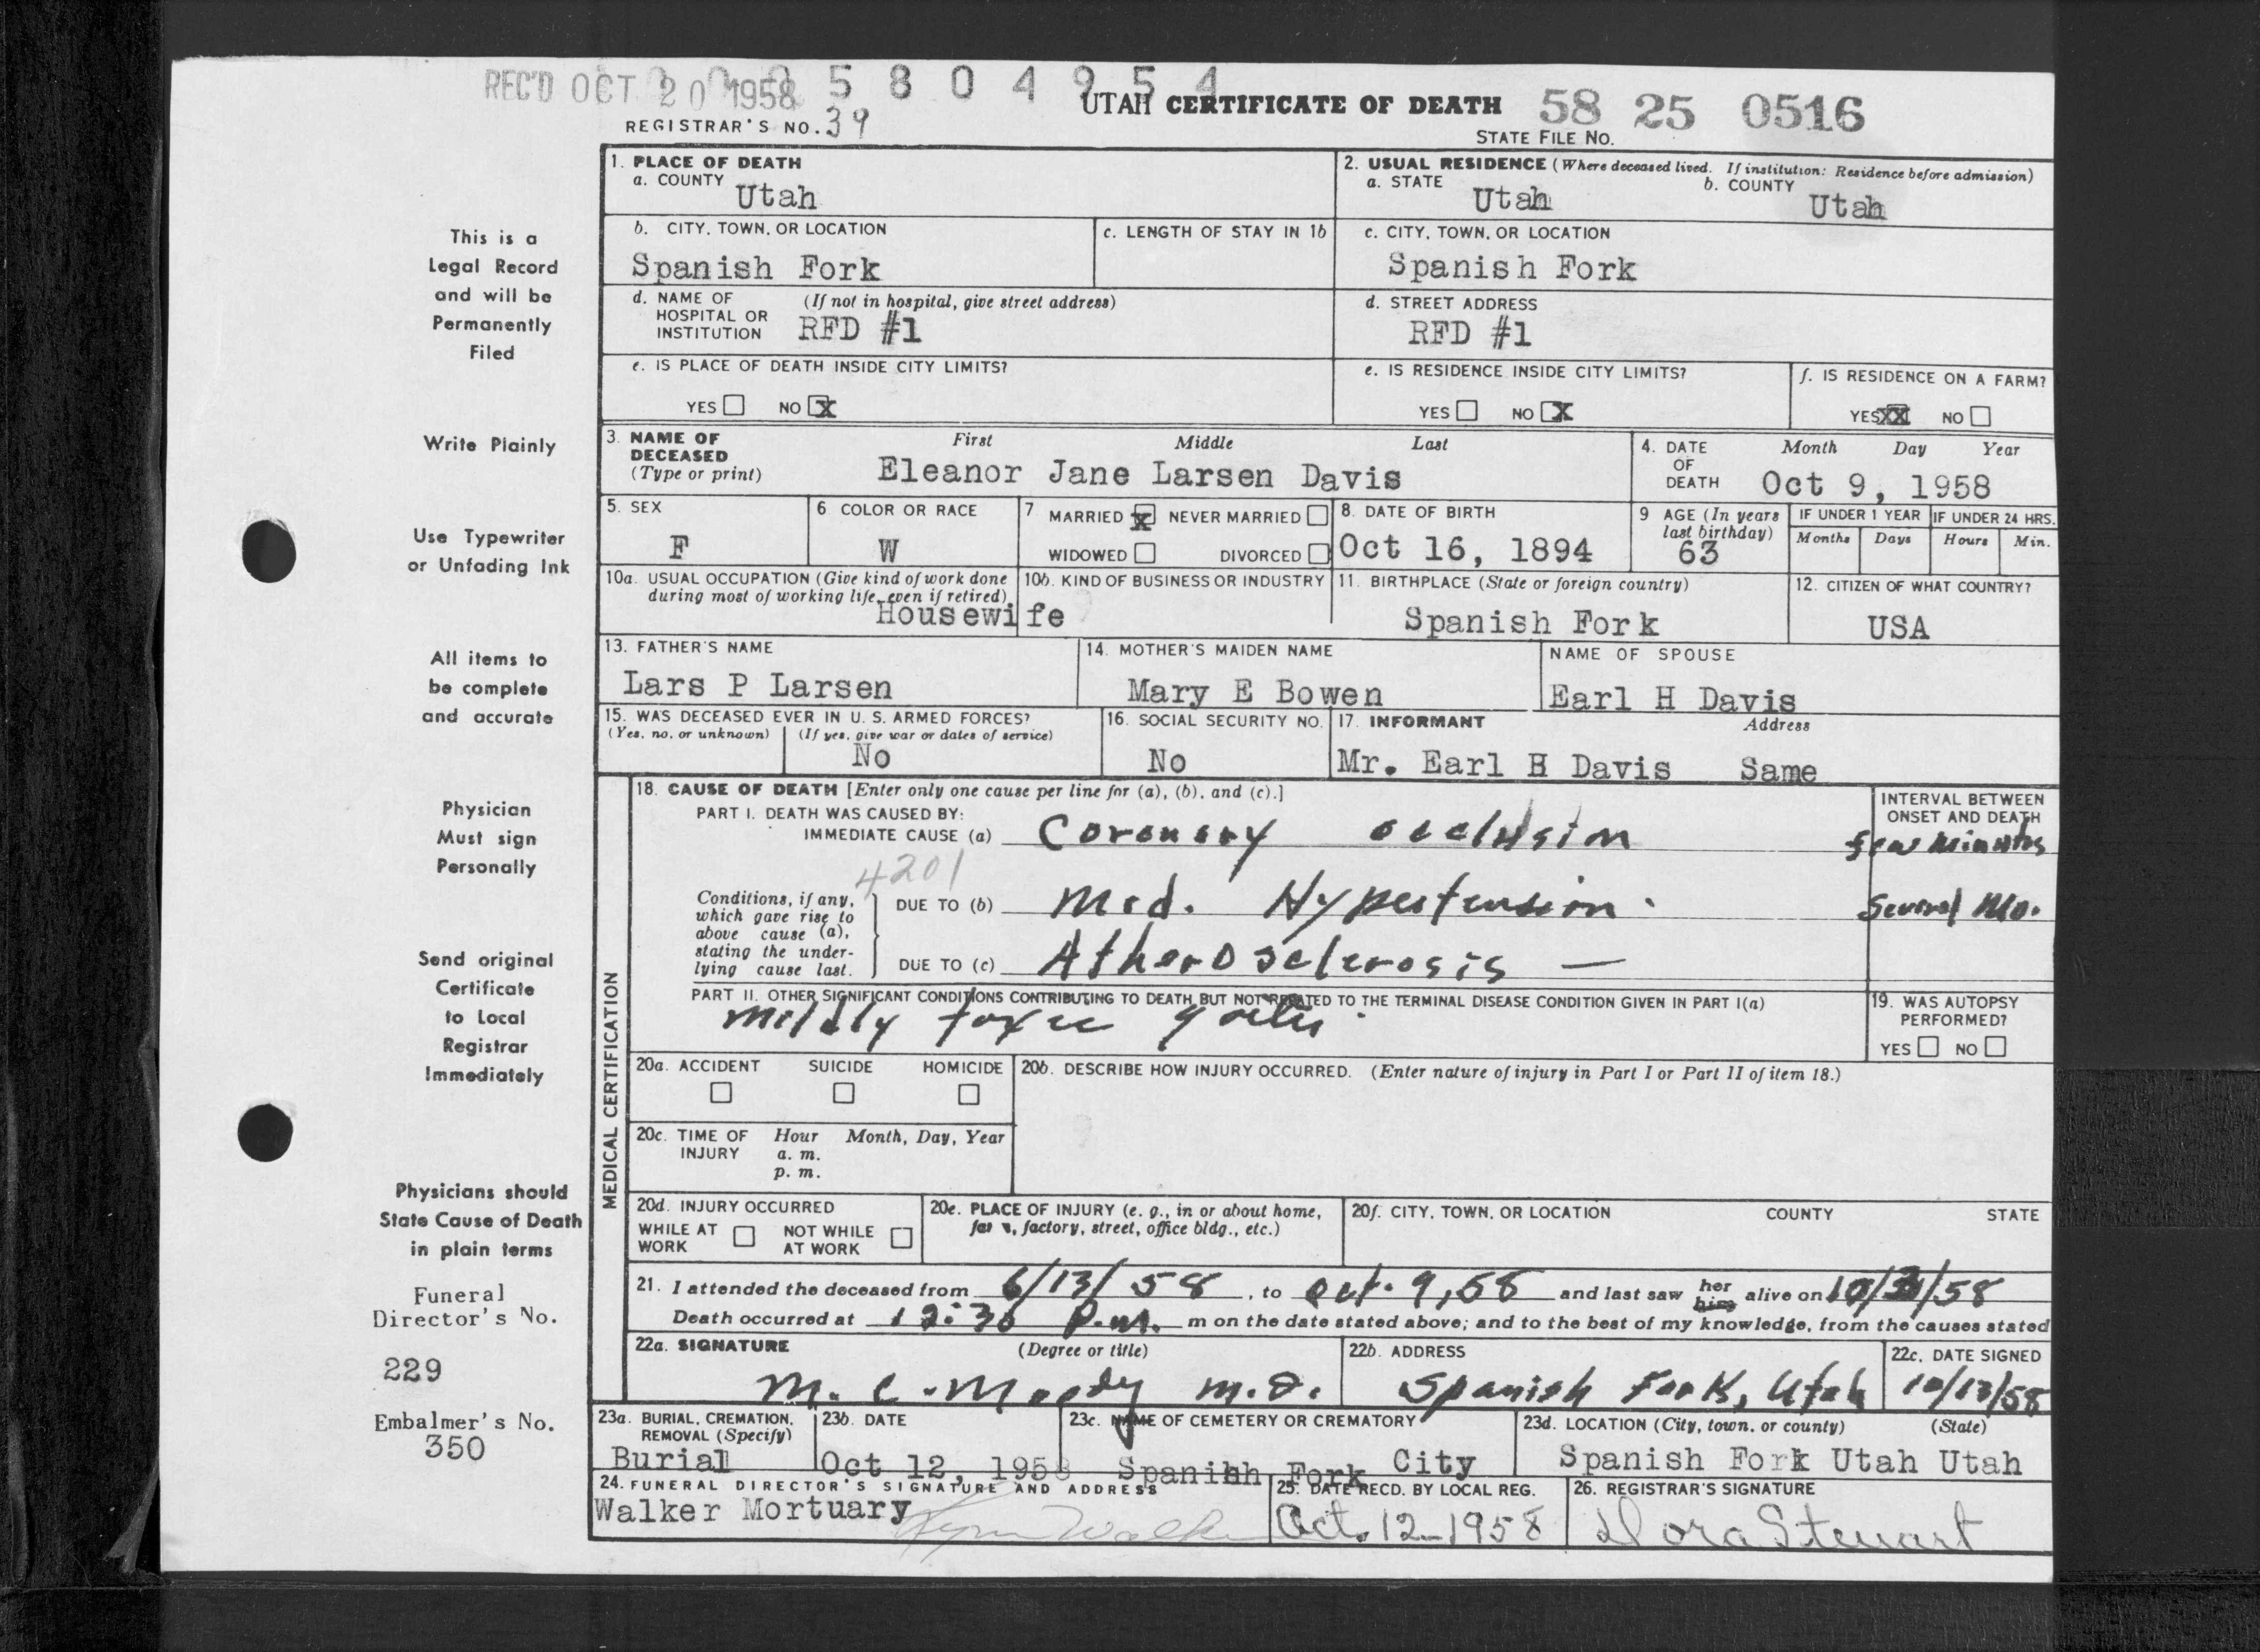 REC'D OCT 20 1958 5 8 0 4 9 5 4
UTAH CERTIFICATE OF DEATH 58 25 0516
REGISTRAR'S NO. 39
STATE FILE NO.
This is a
Legal Record
and will be
Permanently
Filed
Write Plainly
Use Typewriter
or Unfading Ink
All items to
be complete
and accurate
Physician
Must sign
Personally
Send original
Certificate
to Local
Registrar
Immediately
Physicians should
State Cause of Death
in plain terms
Funeral
Director's No.
229
Embalmer's No.
350
1. PLACE OF DEATH
a. COUNTY Utah
2. USUAL RESIDENCE (Where deceased lived. If institution: Residence before admission)
a. STATE Utah b. COUNTY Utah
b. CITY, TOWN, OR LOCATION
Spanish Fork
c. LENGTH OF STAY IN 1b
c. CITY, TOWN, OR LOCATION
Spanish Fork
d. NAME OF HOSPITAL OR INSTITUTION (If not in hospital, give street address)
RFD #1
d. STREET ADDRESS
RFD #1
e. IS PLACE OF DEATH INSIDE CITY LIMITS?
YES NO X
e. IS RESIDENCE INSIDE CITY LIMITS?
YES NO X
f. IS RESIDENCE ON A FARM?
YES XX NO
3. NAME OF DECEASED (Type or print)
First Middle Last
Eleanor Jane Larsen Davis
4. DATE OF DEATH Month Day Year
Oct 9, 1958
5. SEX
F
6 COLOR OR RACE
W
7 MARRIED X NEVER MARRIED
WIDOWED DIVORCED
8. DATE OF BIRTH
Oct 16, 1894
9 AGE (In years last birthday)
63
IF UNDER 1 YEAR IF UNDER 24 HRS.
Months Days Hours Min.
10a. USUAL OCCUPATION (Give kind of work done
during most of working life, even if retired)
Housewife
10b. KIND OF BUSINESS OR INDUSTRY
11. BIRTHPLACE (State or foreign country)
Spanish Fork
12. CITIZEN OF WHAT COUNTRY?
USA
13. FATHER'S NAME
Lars P Larsen
14. MOTHER'S MAIDEN NAME
Mary E Bowen
NAME OF SPOUSE
Earl H Davis
15. WAS DECEASED EVER IN U. S. ARMED FORCES?
(Yes, no, or unknown) (If yes, give war or dates of service)
No
16. SOCIAL SECURITY NO.
No
17. INFORMANT Address
Mr. Earl H Davis Same
MEDICAL CERTIFICATION
18. CAUSE OF DEATH [Enter only one cause per line for (a), (b), and (c).]
INTERVAL BETWEEN
ONSET AND DEATH
PART I. DEATH WAS CAUSED BY:
IMMEDIATE CAUSE (a) Coronary occlusion few minutes
4201
Conditions, if any,
which gave rise to
above cause (a),
stating the under-
lying cause last.
DUE TO (b) Mod. Hypertension. Several Mo.
DUE TO (c) Atherosclerosis —
PART II. OTHER SIGNIFICANT CONDITIONS CONTRIBUTING TO DEATH BUT NOT RELATED TO THE TERMINAL DISEASE CONDITION GIVEN IN PART I(a)
mildly toxic goiter.
19. WAS AUTOPSY
PERFORMED?
YES NO
20a. ACCIDENT SUICIDE HOMICIDE
20b. DESCRIBE HOW INJURY OCCURRED. (Enter nature of injury in Part I or Part II of item 18.)
20c. TIME OF INJURY Hour Month, Day, Year
a. m.
p. m.
20d. INJURY OCCURRED
WHILE AT WORK NOT WHILE AT WORK
20e. PLACE OF INJURY (e. g., in or about home,
factory, street, office bldg., etc.)
20f. CITY, TOWN, OR LOCATION COUNTY STATE
21. I attended the deceased from 6/13/58, to Oct. 9, 58 and last saw her him alive on 10/ /58
Death occurred at 12:30 P.M. m on the date stated above; and to the best of my knowledge, from the causes stated
22a. SIGNATURE (Degree or title)
M. C. Moody M.D.
22b. ADDRESS
Spanish Fork, Utah
22c. DATE SIGNED
10/13/58
23a. BURIAL, CREMATION,
REMOVAL (Specify)
Burial
23b. DATE
Oct 12, 1958
23c. NAME OF CEMETERY OR CREMATORY
Spanish Fork City
23d. LOCATION (City, town, or county) (State)
Spanish Fork Utah Utah
24. FUNERAL DIRECTOR'S SIGNATURE AND ADDRESS
Walker Mortuary Walker
25. DATE RECD. BY LOCAL REG.
Oct. 12-1958
26. REGISTRAR'S SIGNATURE
Dora Stewart